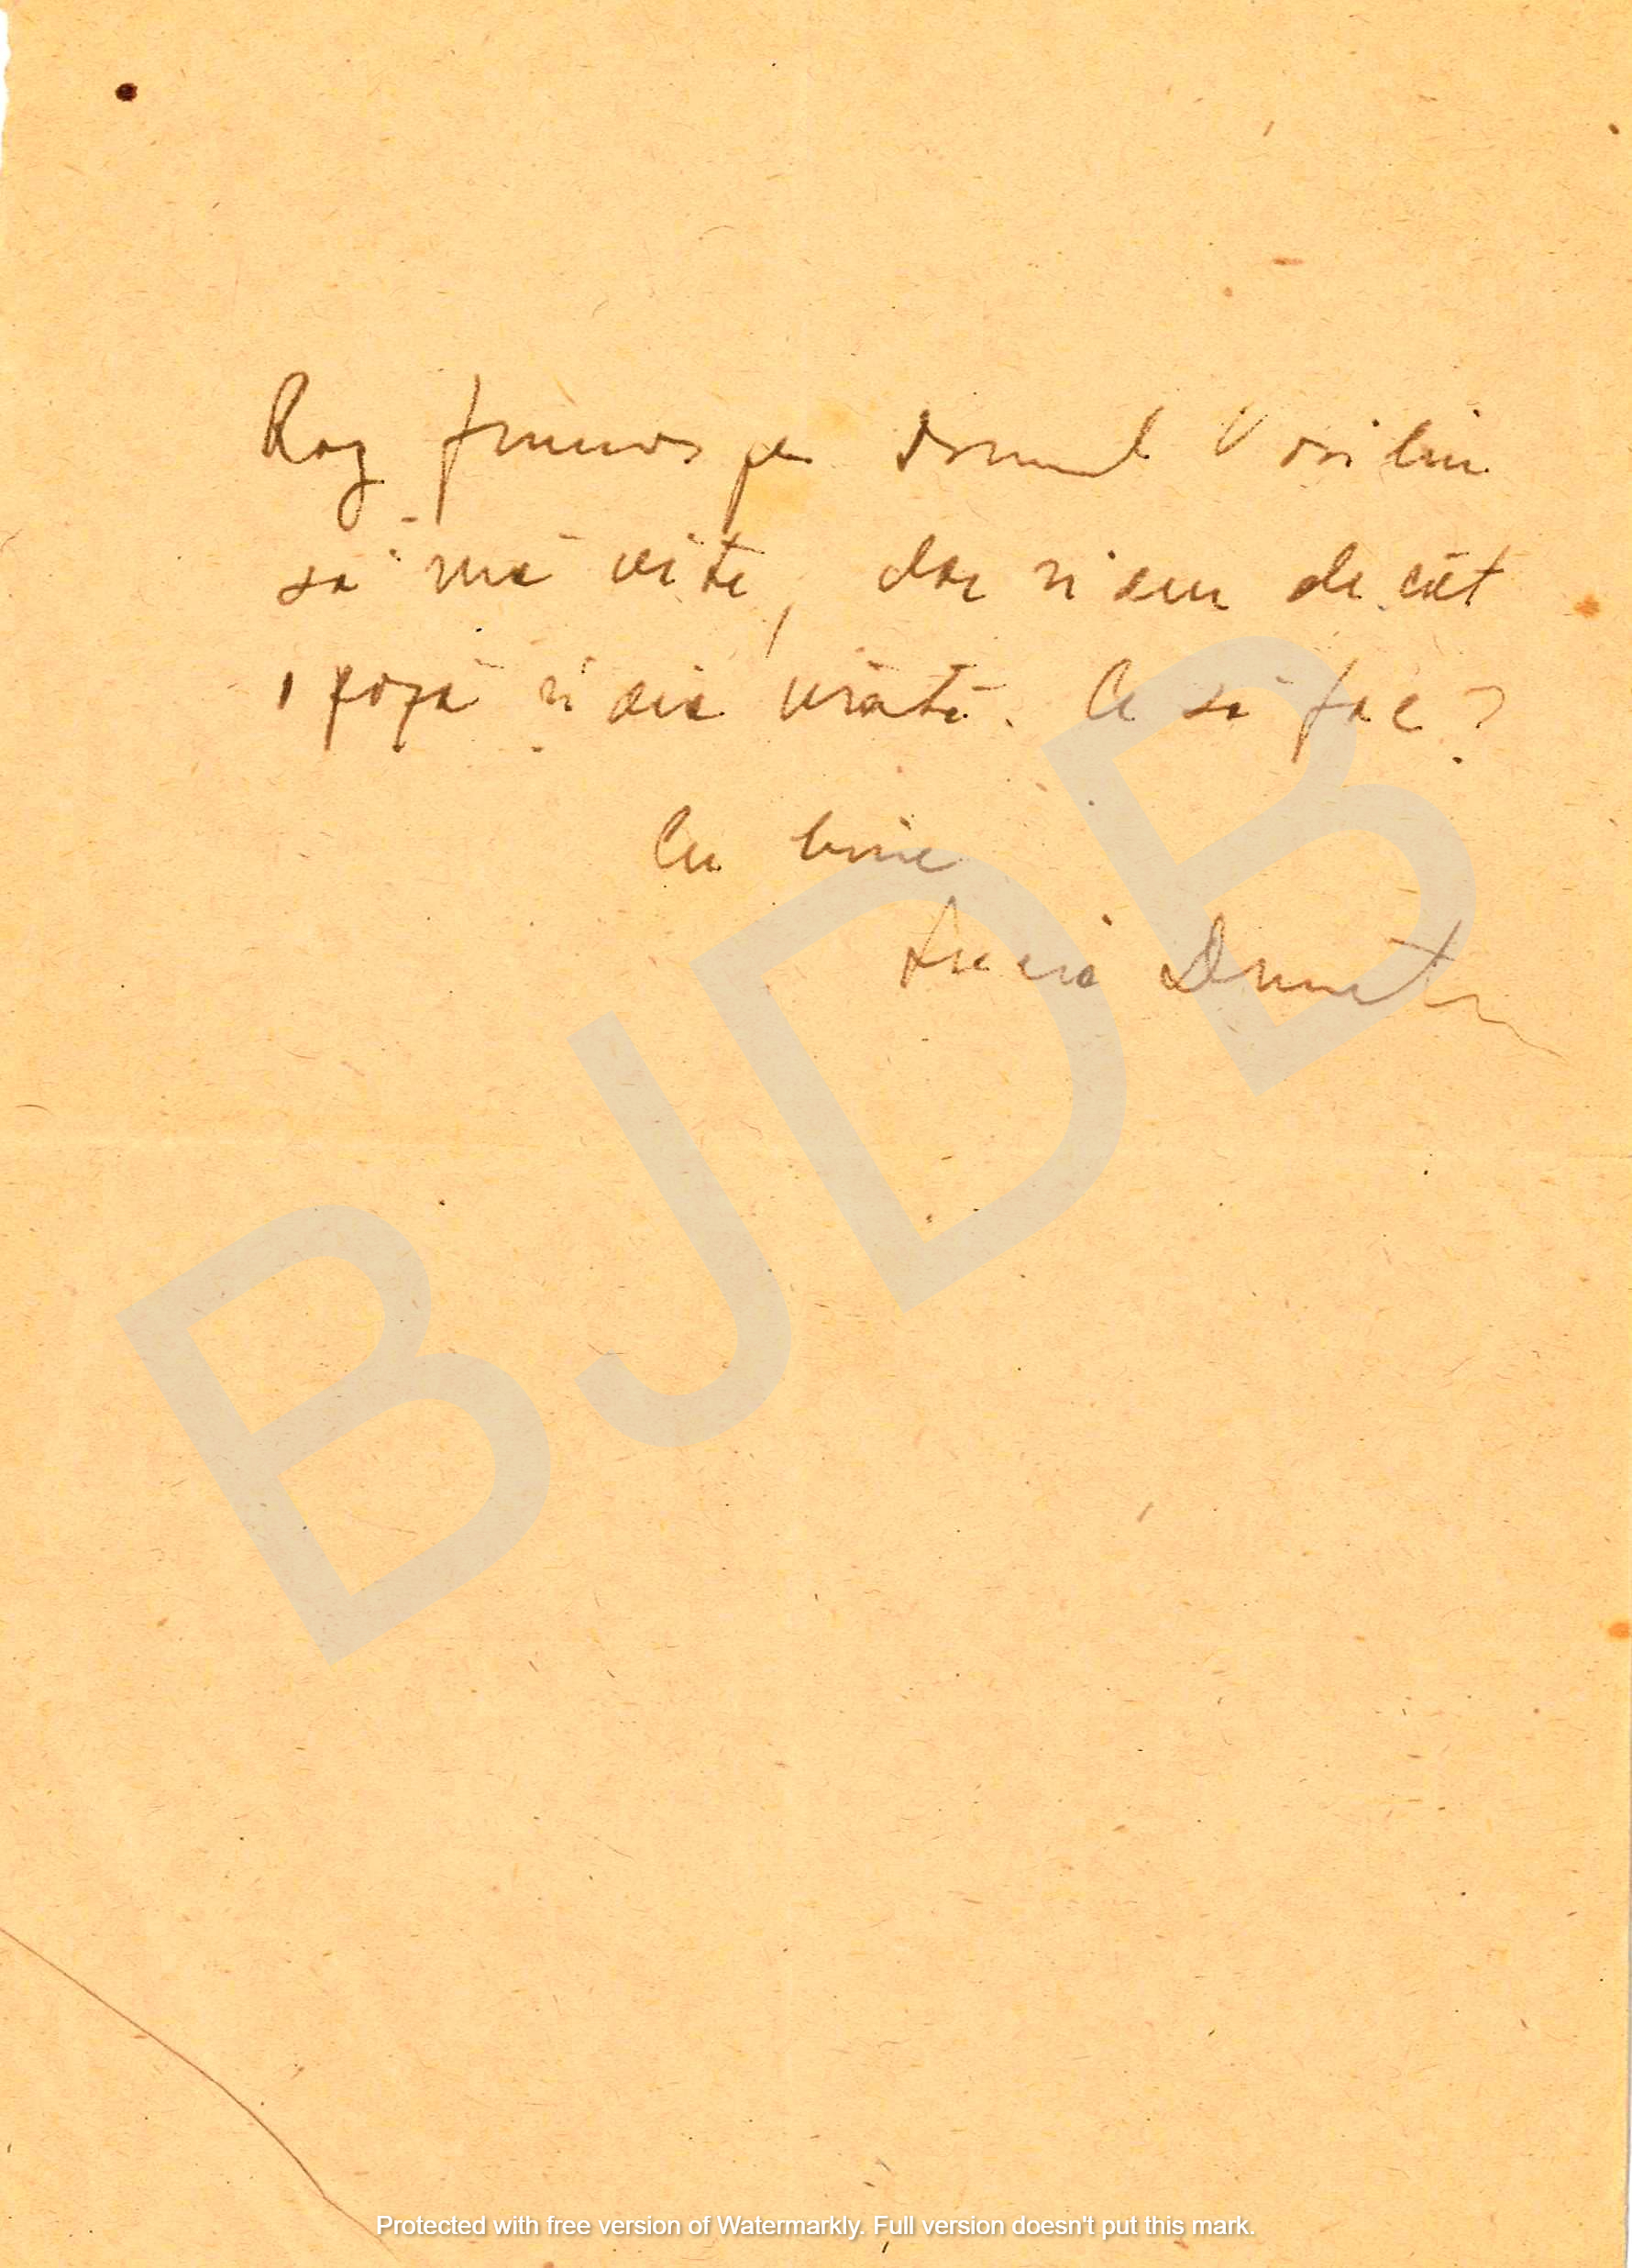 Rog frumos pe domnul Vasiliu
să mă uite, dar n'am de cât
1 poză și aia urâtă. Ce să fac?
Cu bine
Lucia Dumitru
BJDB
Protected with free version of Watermarkly. Full version doesn't put this mark.